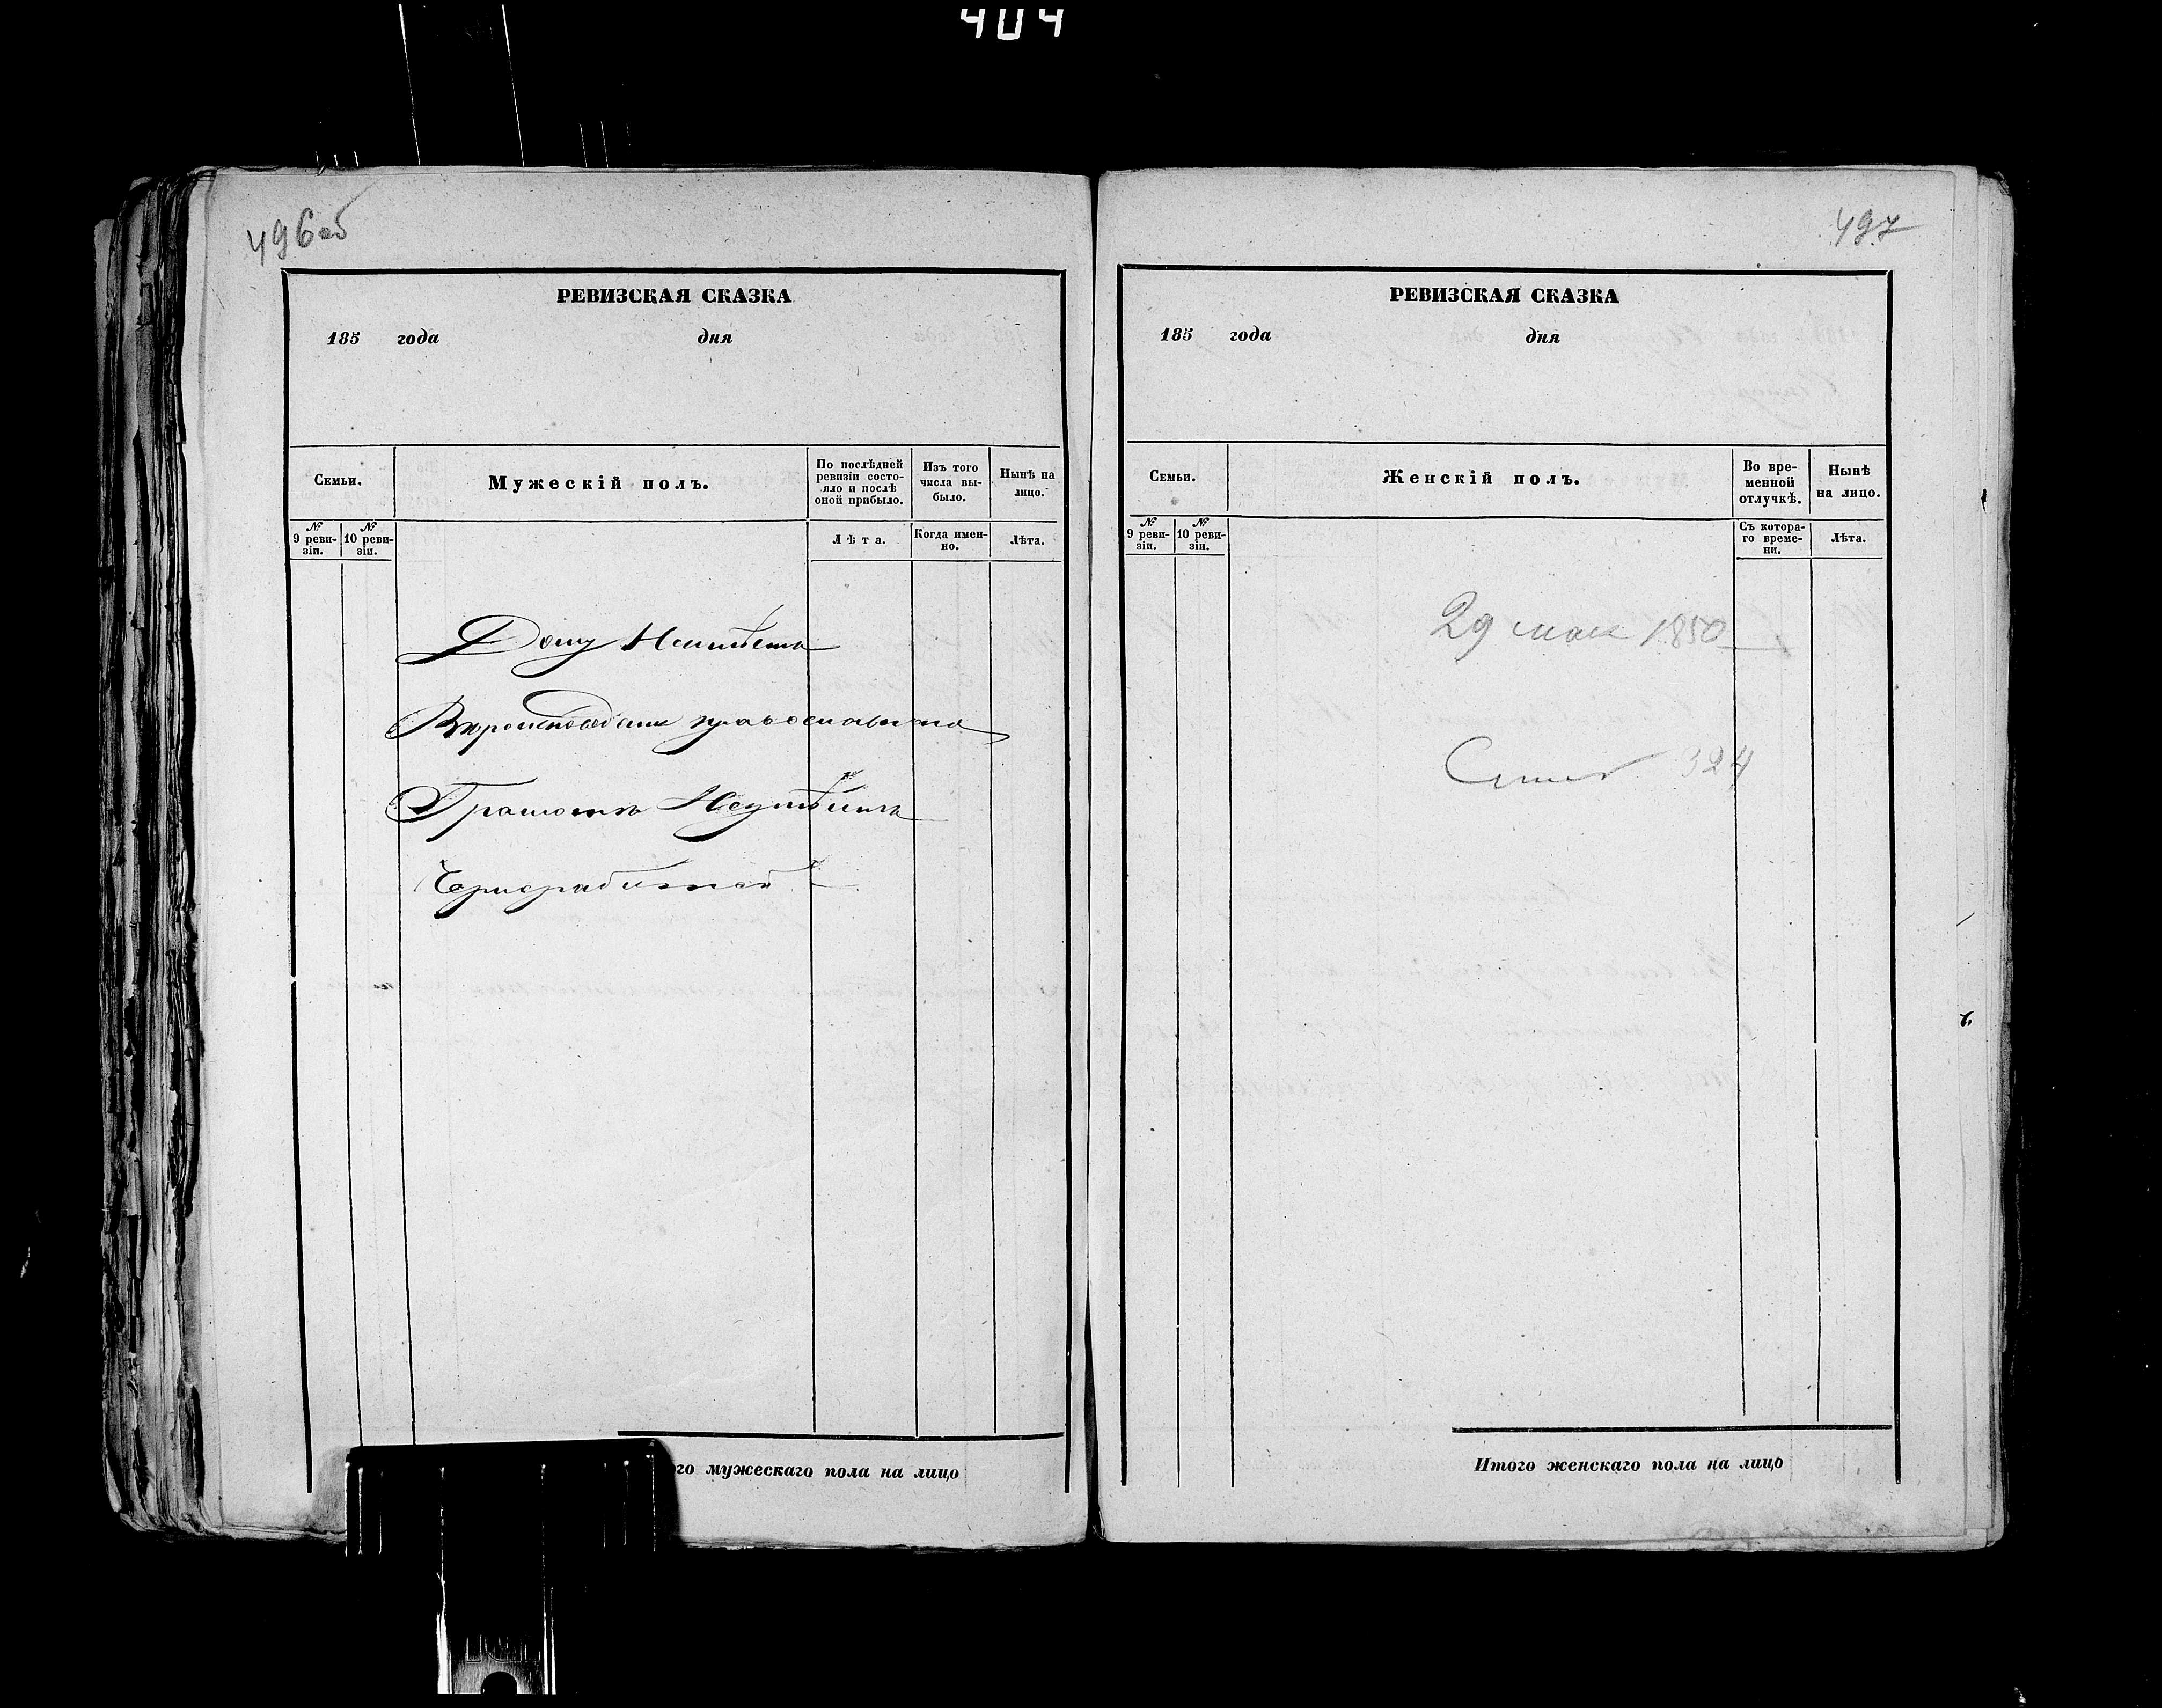 404
496об
РЕВИЗСКАЯ СКАЗКА
185 года дня
Семьи.
Мужескій полъ.
По послѣдней ревизіи состояло и послѣ оной прибыло.
Изъ того числа выбыло.
Нынѣ на лицо.
№ 9 ревизіи.
№ 10 ревизіи.
Лѣта.
Когда именно.
Лѣта.
Дому Неимѣетъ
Вѣроисповѣданія православнаго
Грамотѣ Неумѣетъ
го мужескаго пола на лицо
497
РЕВИЗСКАЯ СКАЗКА
185 года дня
Семьи.
Женскій полъ.
Во временной отлучкѣ.
Нынѣ на лицо.
№ 9 ревизіи.
№ 10 ревизіи.
Съ котораго времени.
Лѣта.
29 мая 1850
324
Итого женскаго пола на лицо